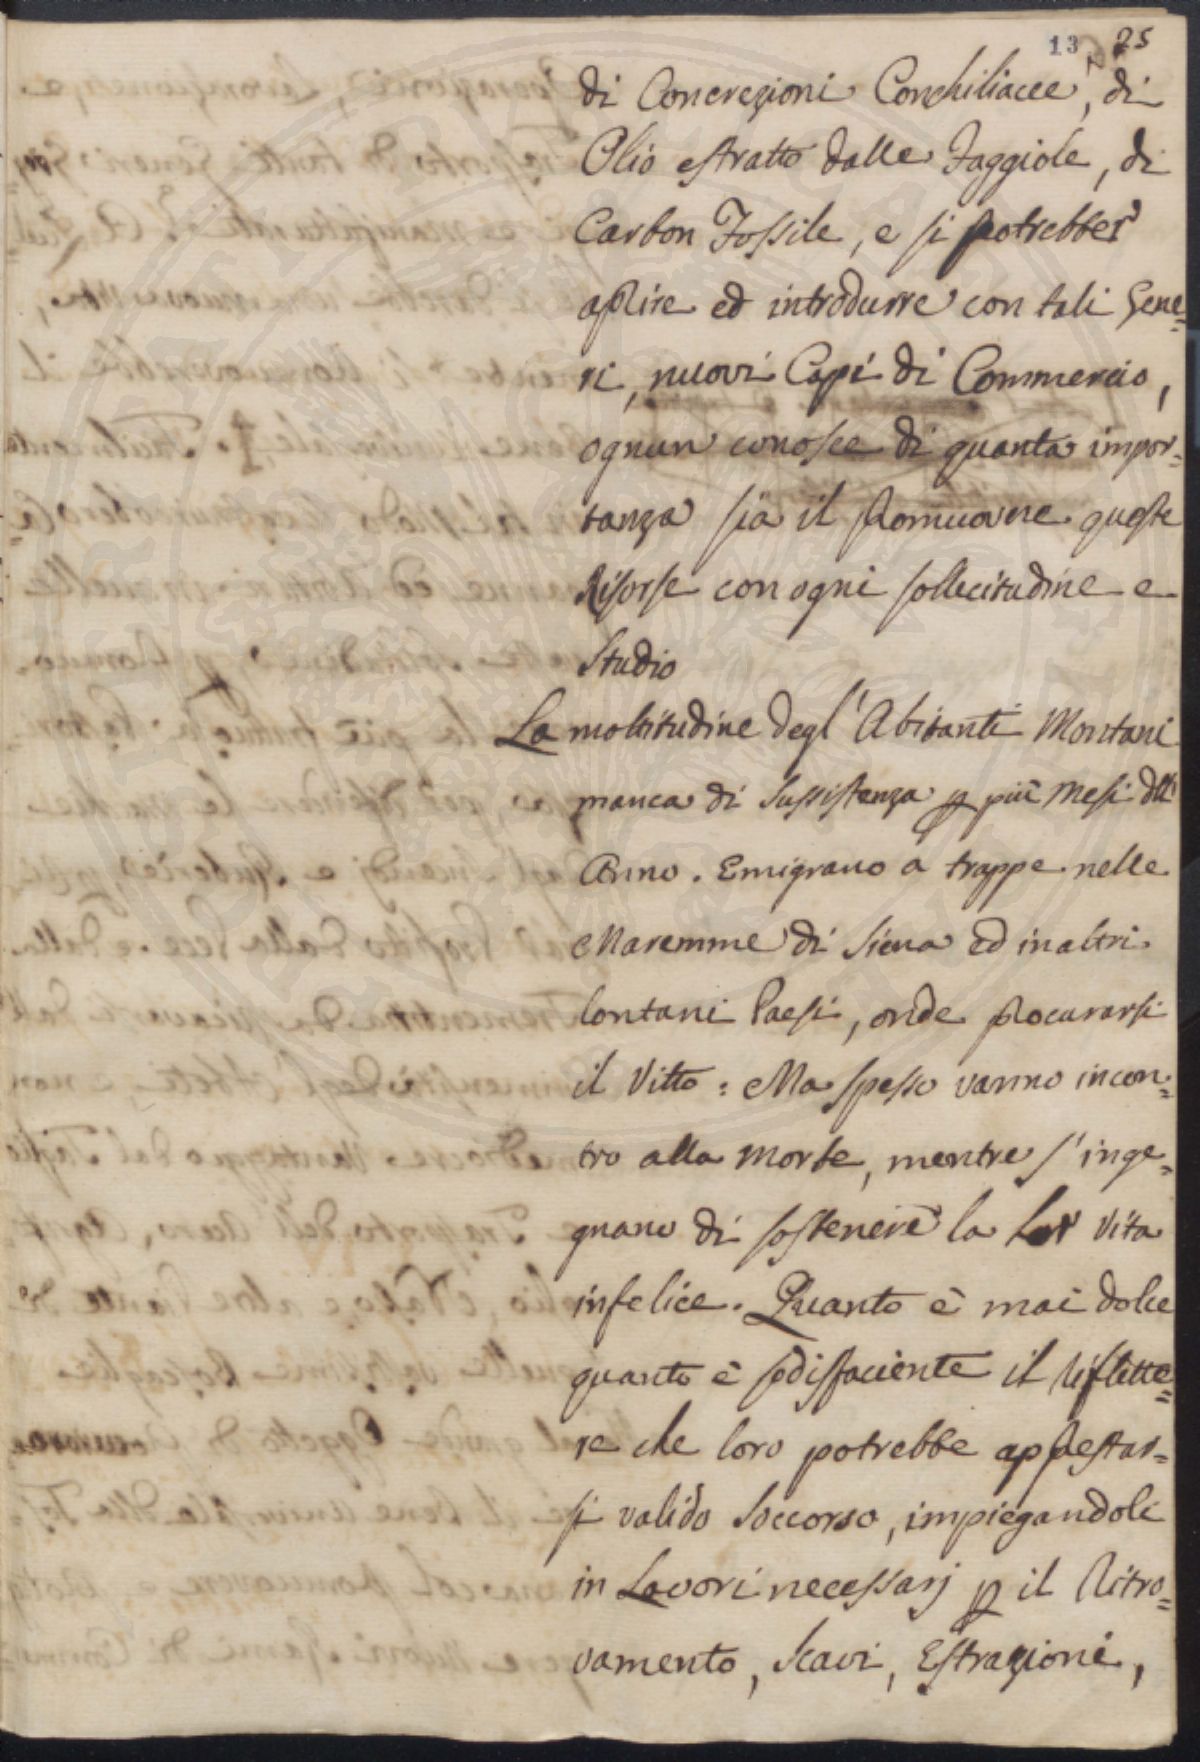 13 25
di Concrezioni Conchiliacee, di
Olio estratto dalle Faggiole, di
Carbon Fossile, e si potrebber
aprire ed introdurre con tali Gene=
ri, nuovi Capi di Commercio,
ognun conosce di quanta impor=
tanza sia il promuovere queste
Risorse con ogni sollecitudine e
Studio
La moltitudine degl'Abitanti Montani
manca di Sussistenza p più Mesi dell'
Anno. Emigrano a truppe nelle
Maremme di Siena ed in altri
lontani Paesi, onde procurarsi
il Vitto: Ma spesso vanno incon=
tro alla morte, mentre s'inge=
gnano di sostenere la Lor Vita
infelice. Quanto è mai dolce
quanto è sodisfaciente il riflette=
re che loro potrebbe apprestar=
si valido Soccorso, impiegandoli
in Lavori necessarj p il Ritro=
vamento, Scavi, Estrazioni,